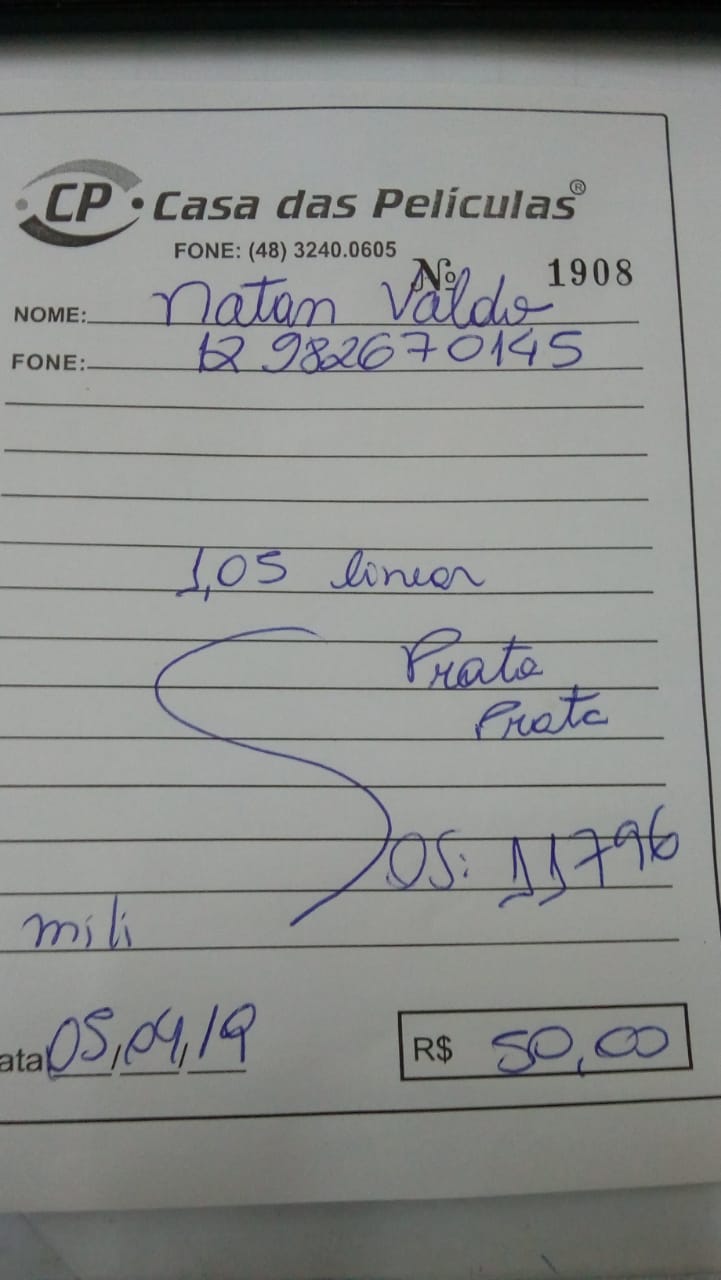 CP • Casa das Películas®
FONE: (48) 3240.0605
Nº 1908
NOME: Natan Valdo
FONE: 12 982670145
1,05 linear
Prata
Prata
OS: 11796
mili
ata 05,04,19
R$ 50,00